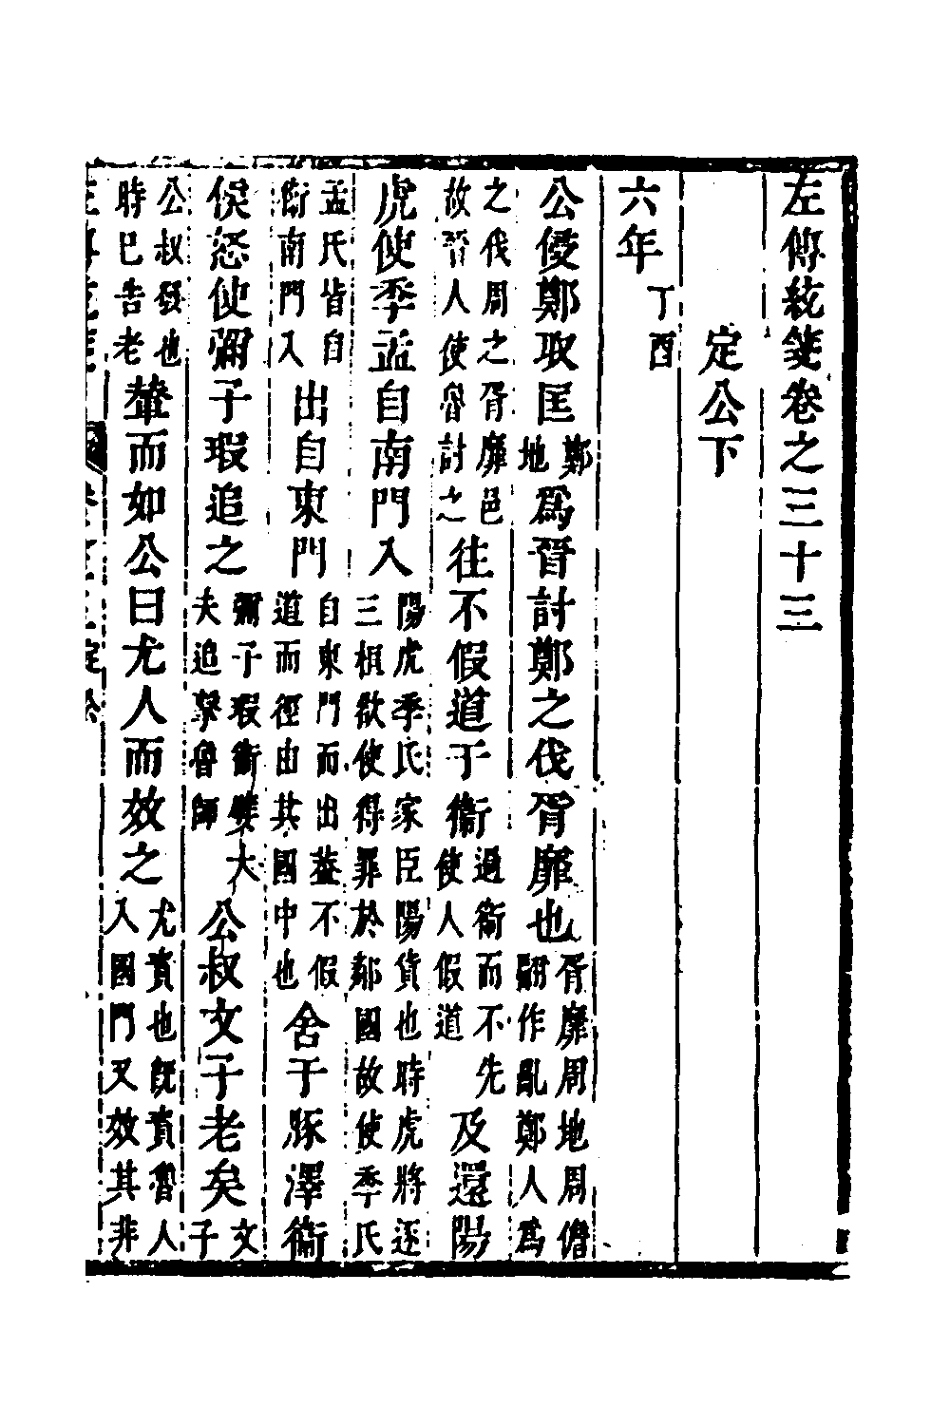 左傳統箋卷之三十三
定公下
六年丁酉
公侵鄭取匡鄭地爲晉討鄭之伐胥靡也胥靡周地周儋翩作亂鄭人爲
之伐周之胥靡邑故晉人使魯討之往不假道于衞過衞而不先使人假道及還陽
虎使季孟自南門入陽虎季氏家臣陽貨也時虎將逐三桓欲使得罪於鄰國故使季氏
孟氏皆自衞南門入出自東門自東門而出葢不假道而徑由其國中也舍于豚澤衞
侯怒使彌子瑕追之彌子瑕衞嬖大夫追擊魯師公叔文子老矣文子
公叔發也時已告老輦而如公曰尤人而效之尤責也旣責魯人入國門又效其非